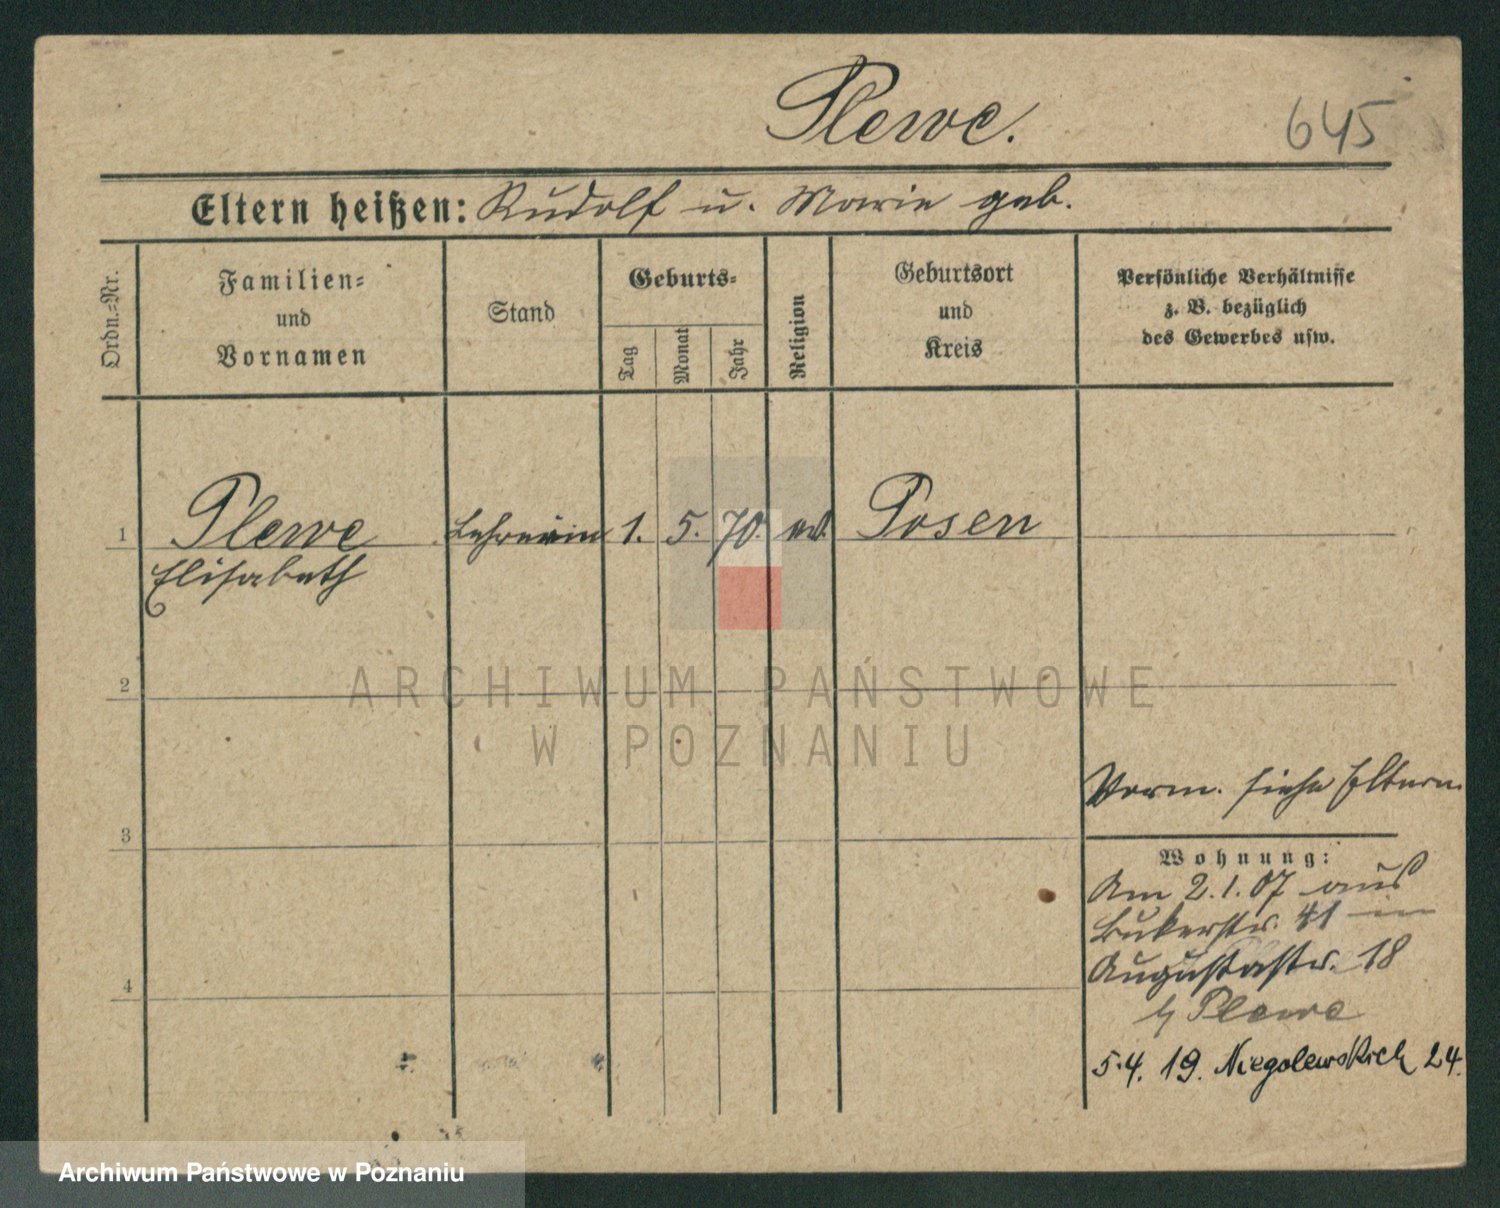 Plewe.
645
Eltern heißen: Rudolf u. Marie geb.
Ordn.-Nr.
Familien-
und
Vornamen
Stand
Geburts-
Tag
Monat
Jahr
Religion
Geburtsort
und
Kreis
Persönliche Verhältnisse
z. B. bezüglich
des Gewerbes usw.
1 Plewe Lehrerin 1. 5. 70. ev. Posen
Elisabeth
2
3
4
Vorm. siehe Eltern
Wohnung:
Am 2.1.07 aus
Bukerstr. 41 in
Augustastr. 18
b/ Plewe
5.4.19. Niegolewskich 24.
ARCHIWUM PAŃSTWOWE
W POZNANIU
Archiwum Państwowe w Poznaniu